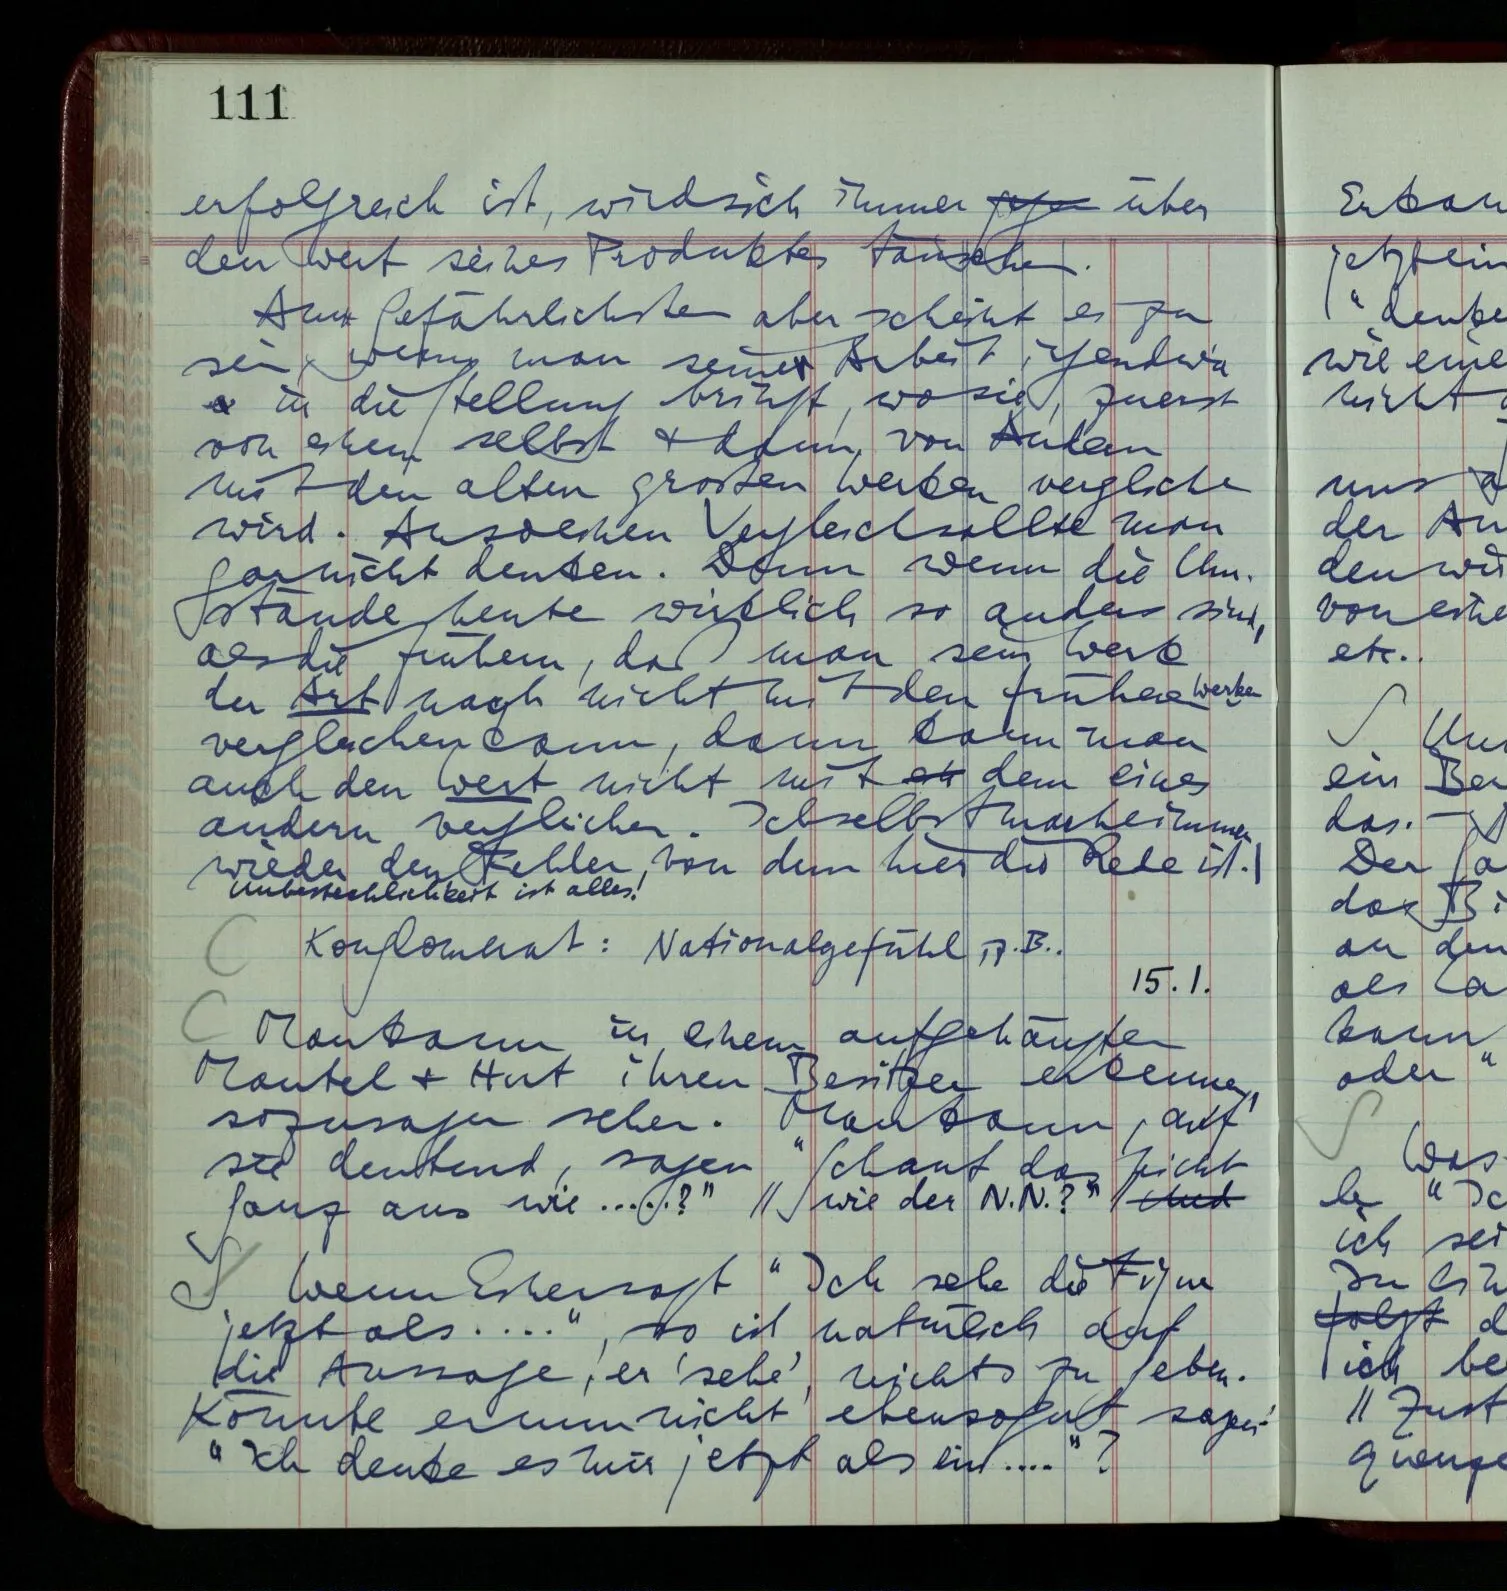 111
erfolgreich ist, wird sich immer gegen über
den Wert seines Produktes täuschen.
Am Gefährlichsten aber scheint es zu
sein, wenn man seine Arbeit irgendwie
in die Stellung bringt, wo sie, zuerst
von einem selbst & dann von Andern
mit den alten grossen Werken verglichen
wird. An solchen Vergleich sollte man
gar nicht denken. Denn wenn die Um-
stände heute wirklich so anders sind,
als die frühern, daß man sein Werk
der Art nach nicht mit den früheren Werken
vergleichen kann, dann kann man
auch den Wert nicht mit dem eines
andern vergleichen. Ich selbst mache immer
wieder den Fehler, von dem hier die Rede ist.|
Unbestechlichkeit ist alles!
Konglomerat: Nationalgefühl z.B..
15.1.
Man kann in einem aufgehängten
Mantel & Hut ihren Besitzer erkennen,
sozusagen sehen. Man kann, auf
sie deutend, sagen "Schaut das nicht
ganz aus wie .....?" // wie der N.N.?" Und
∫ Wenn Einer sagt "Ich sehe die Figur
jetzt als ....", so ist natürlich auf
die Aussage, er 'sehe', nichts zu geben.
Könnte er nun nicht ebensogut sagen:
"Ich denke es mir jetzt als ein...."?
Erkan
jetzt ein
"denke
wie eine
nicht
uns
der An
den wi
von eine
etc..
∫ Un
ein Be
das. –
Der
das Bi
an den
als
kann
oder "
∫ Was
"Ic
ich sei
folgt d
ich be
// Zust